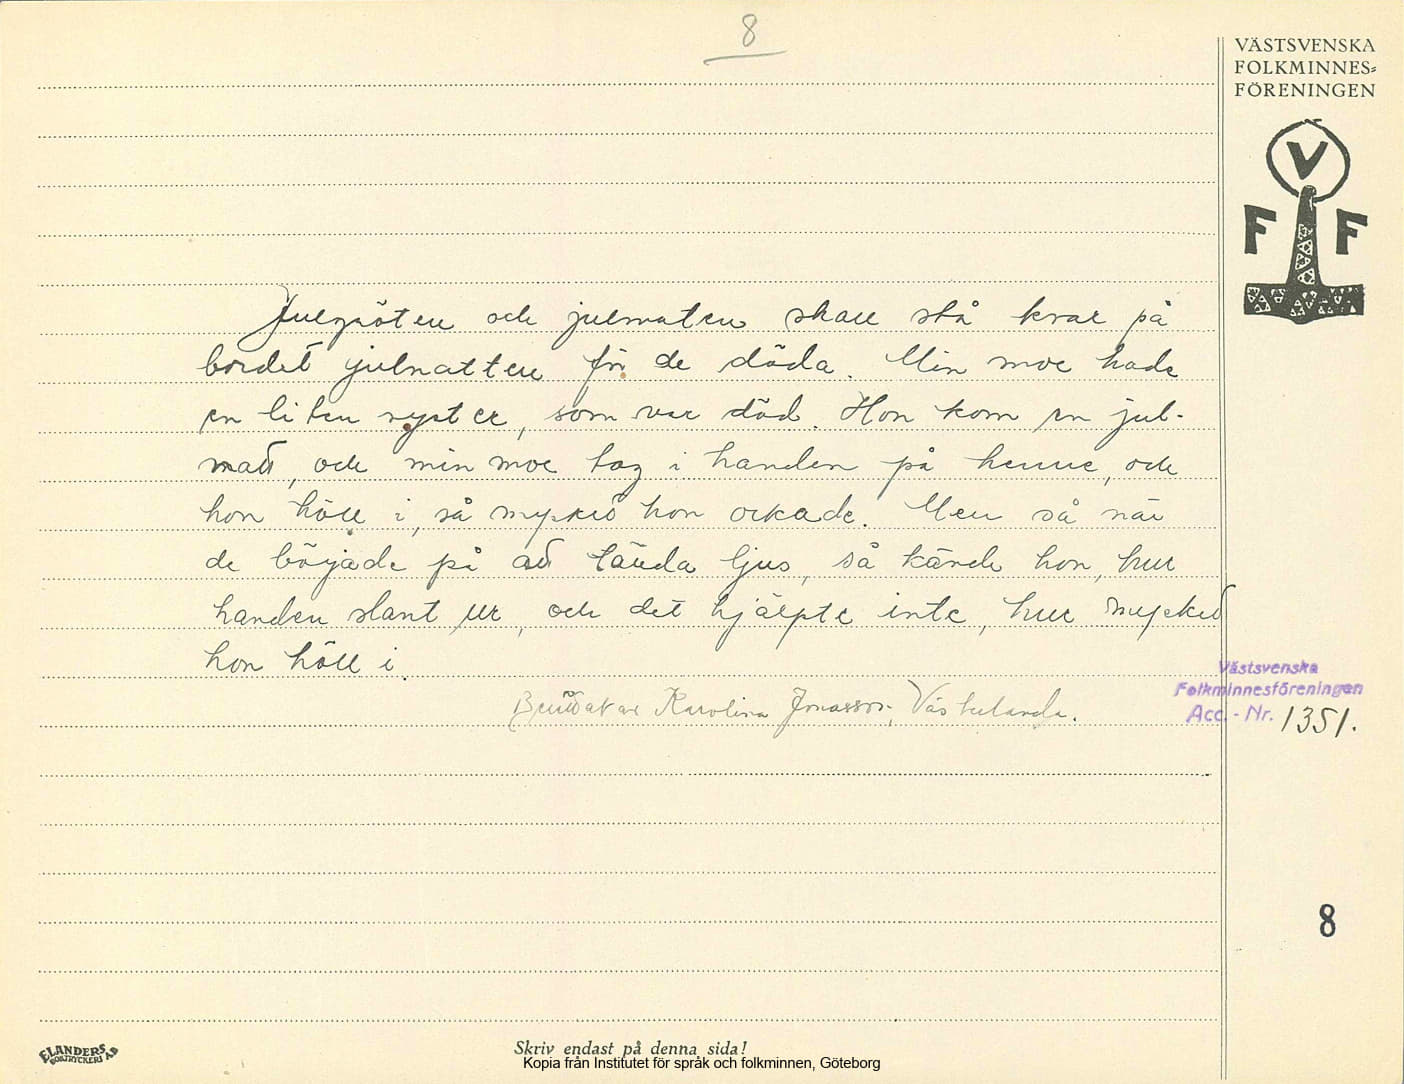 8
VÄSTSVENSKA
FOLKMINNES=
FÖRENINGEN
V
F F
Julgröten och julmaten skall stå kvar på
bordet julnatten för de döda. Min mor hade
en liten syster, som var död. Hon kom en jul-
natt, och min mor tog i handen på henne, och
hon höll i, så mycket hon orkade. Men så när
de började på att tända ljus, så kände hon, hur
handen slant ur, och det hjälpte inte, hur mycket
hon höll i.
Berättat av Karolina Jonasson, Västerlanda.
Västsvenska
Folkminnesföreningen
Acc. - Nr. 1351.
8
ELANDERS
BOKTRYCKERI AB
Skriv endast på denna sida!
Kopia från Institutet för språk och folkminnen, Göteborg